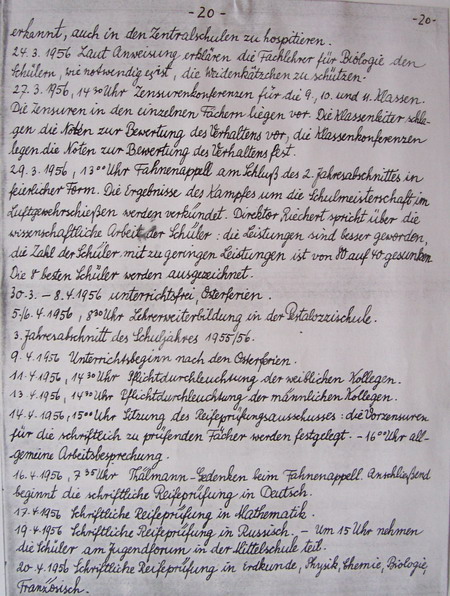 - 20 -
-20-
erkannt, auch in den Zentralschulen zu hospitieren.
24.3.1956 Laut Anweisung erklären die Fachlehrer für Biologie den
Schülern, wie notwendig es ist, die Weidenkätzchen zu schützen.
27.3.1956, 14³⁰ Uhr Zensurenkonferenzen für die 9., 10. und 11. Klassen.
Die Zensuren in den einzelnen Fächern liegen vor. Die Klassenleiter schla-
gen die Noten zur Bewertung des Verhaltens vor, die Klassenkonferenzen
legen die Noten zur Bewertung des Verhaltens fest.
29.3.1956, 13⁰⁰ Uhr Fahnenappell am Schluß des 2. Jahresabschnittes in
feierlicher Form. Die Ergebnisse des Kampfes um die Schulmeisterschaft im
Luftgewehrschießen werden verkündet. Direktor Reichert spricht über die
wissenschaftliche Arbeit der Schüler: die Leistungen sind besser geworden,
die Zahl der Schüler mit zu geringen Leistungen ist von 80 auf 40 gesunken.
Die 8 besten Schüler werden ausgezeichnet.
30.3. - 8.4.1956 unterrichtsfrei, Osterferien.
5./6.4.1956, 8³⁰ Uhr Lehrerweiterbildung in der Pestalozzischule.
3. Jahresabschnitt des Schuljahres 1955/56.
9.4.1956 Unterrichtsbeginn nach den Osterferien.
11.4.1956, 14³⁰ Uhr Pflichtdurchleuchtung der weiblichen Kollegen.
13.4.1956, 14³⁰ Uhr Pflichtdurchleuchtung der männlichen Kollegen.
14.4.1956, 15⁰⁰ Uhr Sitzung des Reifeprüfungsausschusses: die Vorzensuren
für die schriftlich zu prüfenden Fächer werden festgelegt. - 16⁰⁰ Uhr all-
gemeine Arbeitsbesprechung.
16.4.1956, 7³⁵ Uhr Thälmann-Gedenken beim Fahnenappell. Anschließend
beginnt die schriftliche Reifeprüfung in Deutsch.
17.4.1956 Schriftliche Reifeprüfung in Mathematik.
19.4.1956 Schriftliche Reifeprüfung in Russisch. - Um 15 Uhr nehmen
die Schüler am Jugendforum in der Mittelschule teil.
20.4.1956 Schriftliche Reifeprüfung in Erdkunde, Physik, Chemie, Biologie,
Französisch.